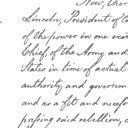 Now, ther
Lincoln, President of
of the power in me ves
Chief, of the Army and
States in time of actual
authority and governm
and as a fit and necess
pressing said rebellion,